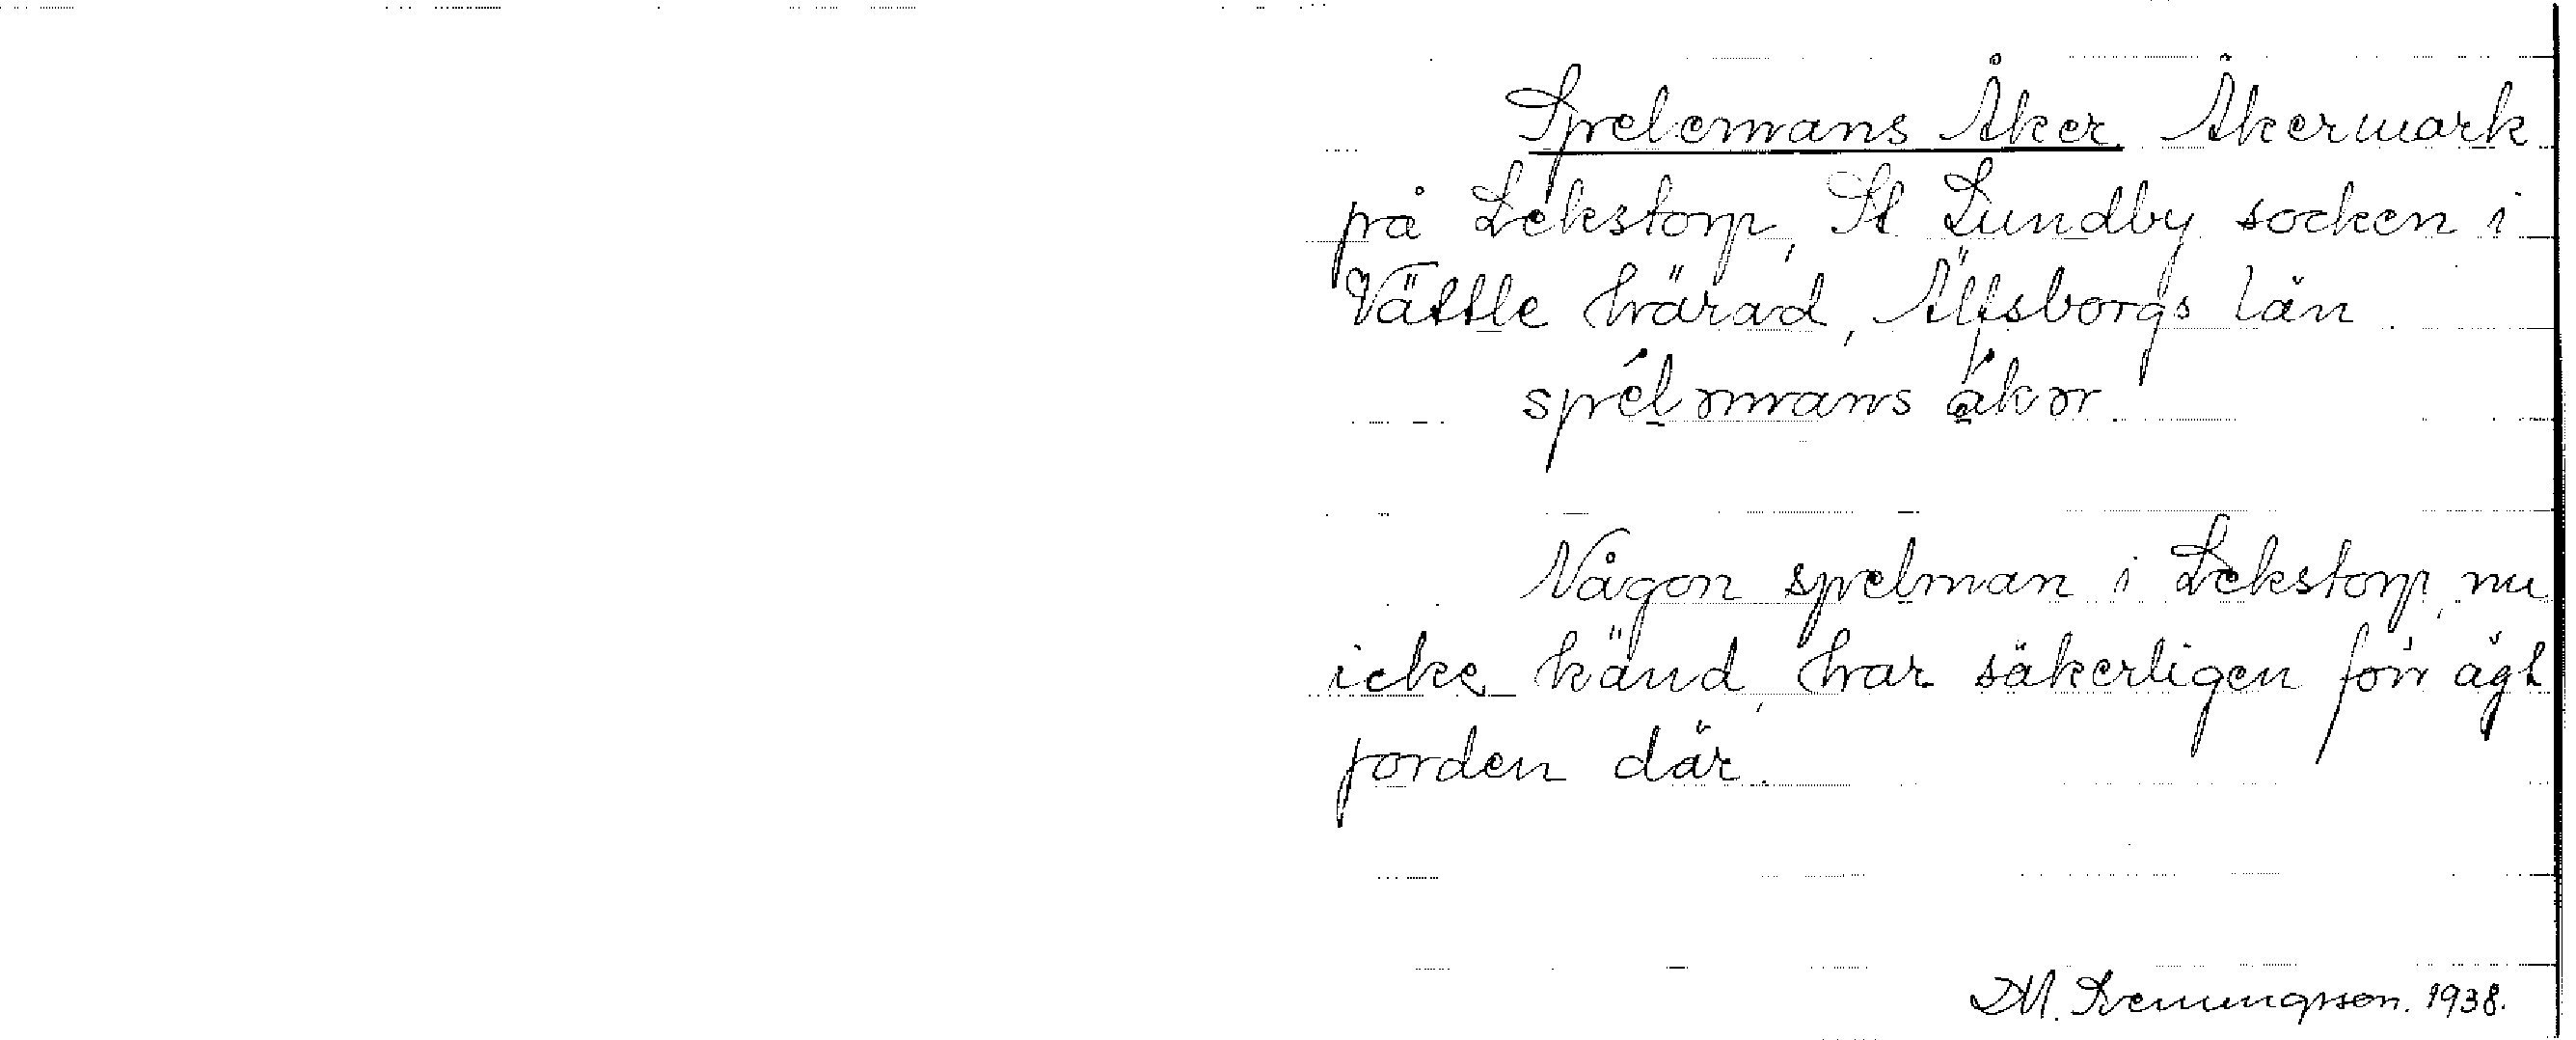 Spelemans Åker. Åkermark
på Lekstorp, St Lundby socken i
Vättle härad, Älfsborgs län.
spélmans åkər
Någon spelman i Lekstorp, nu
icke känd, har säkerligen förr ägt
jorden där.
D.M. 1938.